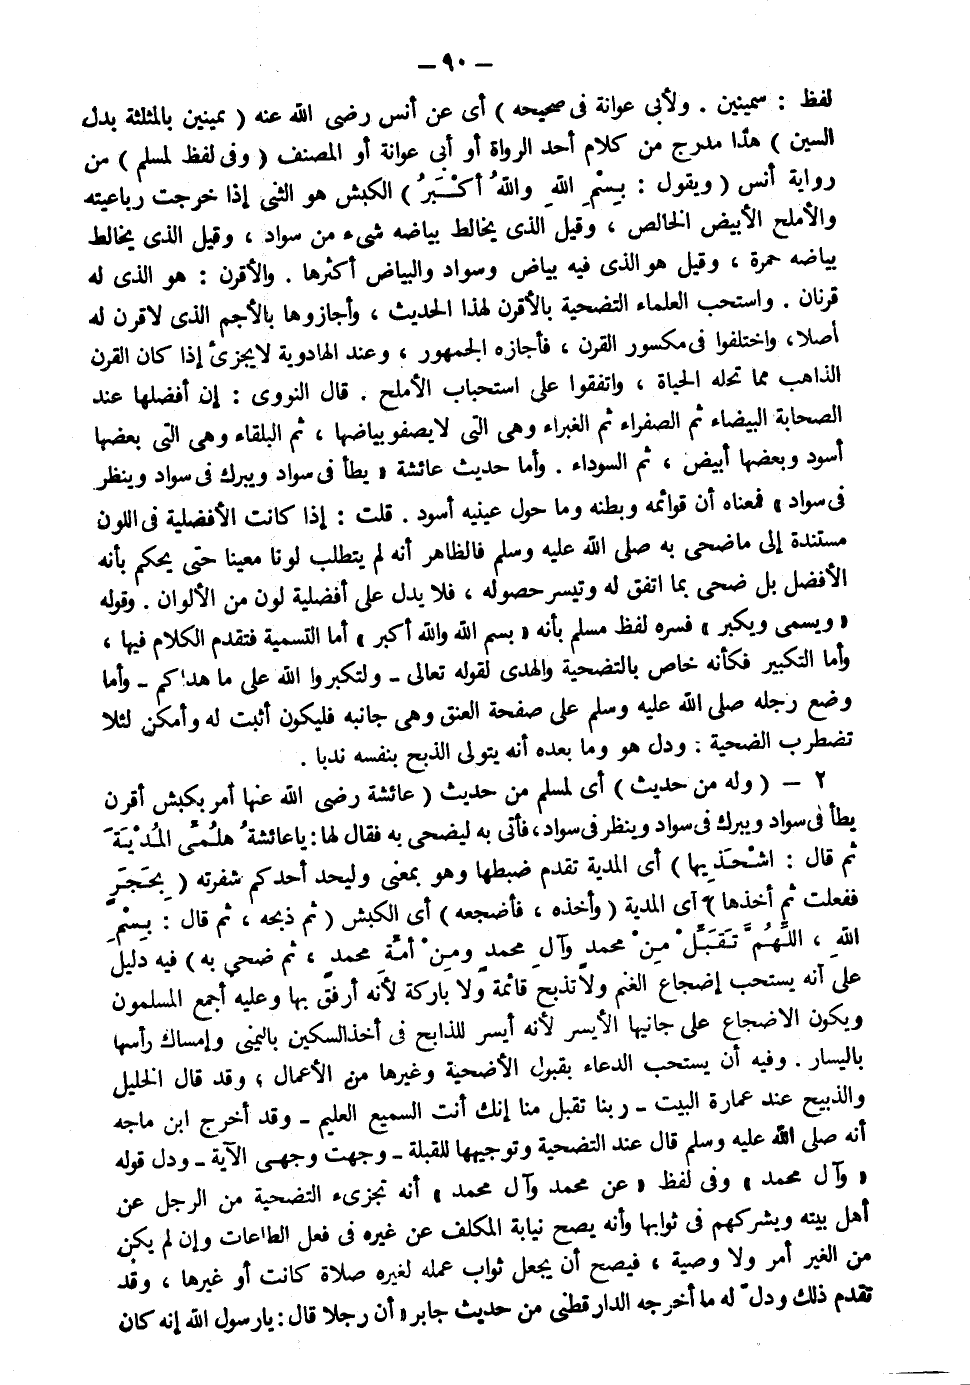 — ٩٠ —
لفظ : سمينين . ولأبى عوانة فى صحيحه ) أى عن أنس رضى الله عنه ( ثمينين بالمثلثة بدل
السين ) هذا مدرج من كلام أحد الرواة أو أبى عوانة أو المصنف ( وفى لفظ لمسلم ) من
رواية أنس ( ويقول : بِسْمِ اللهِ واللهُ أكْبَرُ ) الكبش هو الثنى إذا خرجت رباعيته
والأملح الأبيض الخالص ، وقيل الذى يخالط بياضه شىء من سواد ، وقيل الذى يخالط
بياضه حمرة ، وقيل هو الذى فيه بياض وسواد والبياض أكثرها . والأقرن : هو الذى له
قرنان . واستحب العلماء التضحية بالأقرن لهذا الحديث ، وأجازوها بالأجم الذى لاقرن له
أصلا، واختلفوا فى مكسور القرن ، فأجازه الجمهور ، وعند الهادوية لايجزئ إذا كان القرن
الذاهب مما تحله الحياة ، واتفقوا على استحباب الأملح . قال النووى : إن أفضلها عند
الصحابة البيضاء ثم الصفراء ثم الغبراء وهى التى لايصفو بياضها ، ثم البلقاء وهى التى بعضها
أسود وبعضها أبيض ، ثم السوداء . وأما حديث عائشة « يطأ فى سواد ويبرك فى سواد وينظر
فى سواد » فمعناه أن قوائمه وبطنه وما حول عينيه أسود . قلت : إذا كانت الأفضلية فى اللون
مستندة إلى ماضحى به صلى الله عليه وسلم فالظاهر أنه لم يتطلب لونا معينا حتى يحكم بأنه
الأفضل بل ضحى بما اتفق له وتيسر حصوله ، فلا يدل على أفضلية لون من الألوان . وقوله
« ويسمى ويكبر » فسره لفظ مسلم بأنه « بسم الله والله أكبر » أما التسمية فتقدم الكلام فيها ،
وأما التكبير فكأنه خاص بالتضحية والهدى لقوله تعالى ـ ولتكبروا الله على ما هداكم ـ وأما
وضع رجله صلى الله عليه وسلم على صفحة العنق وهى جانبه فليكون أثبت له وأمكن لئلا
تضطرب الضحية : ودل هو وما بعده أنه يتولى الذبح بنفسه ندبا .
٢ — ( وله من حديث ) أى لمسلم من حديث ( عائشة رضى الله عنها أمر بكبش أقرن
يطأ فى سواد ويبرك فى سواد وينظر فى سواد، فأتى به ليضحى به فقال لها: ياعائشةُ هلُمِّى المُدْيَةَ
ثم قال : اشْحَذِيها ) أى المدية تقدم ضبطها وهو بمعنى وليحد أحدكم شفرته ( بِحَجَرٍ
ففعلت ثم أخذها ) أى المدية ( وأخذه ، فأضجعه ) أى الكبش ( ثم ذبحه ، ثم قال : بِسْمِ
اللهِ ، اللَّهُمَّ تَقَبَّلْ مِنْ محمدٍ وآلِ محمدٍ ومِنْ أمَّةِ محمدٍ ، ثم ضحى به ) فيه دليل
على أنه يستحب إضجاع الغنم ولا تذبح قائمة ولا باركة لأنه أرفق بها وعليه أجمع المسلمون
ويكون الاضجاع على جانبها الأيسر لأنه أيسر للذابح فى أخذ السكين باليمنى وإمساك رأسها
باليسار . وفيه أن يستحب الدعاء بقبول الأضحية وغيرها من الأعمال ، وقد قال الخليل
والذبيح عند عمارة البيت ـ ربنا تقبل منا إنك أنت السميع العليم ـ وقد أخرج ابن ماجه
أنه صلى الله عليه وسلم قال عند التضحية وتوجيهها للقبلة ـ وجهت وجهى الآية ـ ودل قوله
« وآل محمد » وفى لفظ « عن محمد وآل محمد » أنه تجزىء التضحية من الرجل عن
أهل بيته ويشركهم فى ثوابها وأنه يصح نيابة المكلف عن غيره فى فعل الطاعات وإن لم يكن
من الغير أمر ولا وصية ، فيصح أن يجعل ثواب عمله لغيره صلاة كانت أو غيرها ، وقد
تقدم ذلك ودلّ له ما أخرجه الدارقطنى من حديث جابر « أن رجلا قال : يارسول الله إنه كان